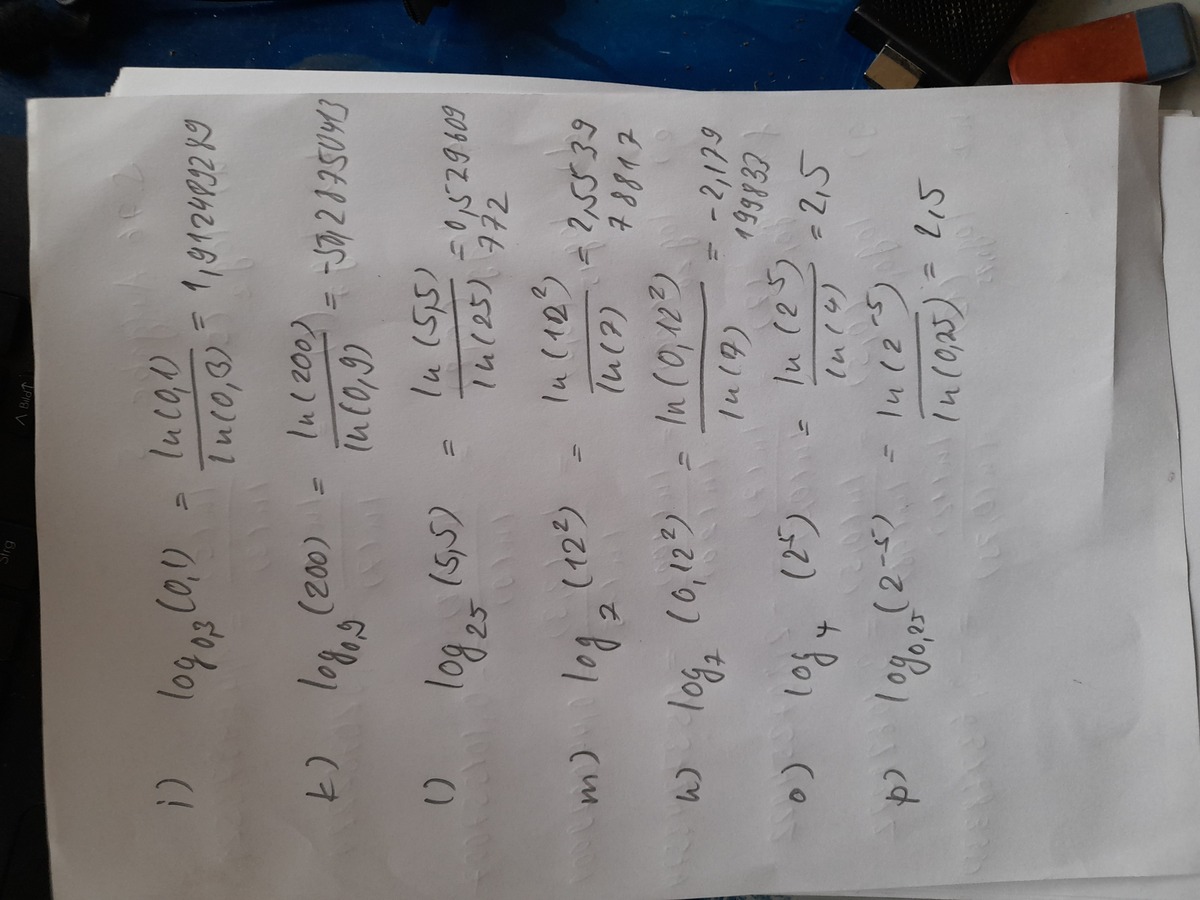 i) log₀,₃(0,1) = ln(0,1) / ln(0,3) = 1,912489289
k) log₀,₉(200) = ln(200) / ln(0,9) = -50,28750413
l) log₂₅(5,5) = ln(5,5) / ln(25) = 0,529609
772
m) log₇(12²) = ln(12²) / ln(7) = 2,55539
78817
n) log₇(0,12²) = ln(0,12²) / ln(7) = -2,179
199837
o) log₄(2⁵) = ln(2⁵) / ln(4) = 2,5
p) log₀,₂₅(2⁻⁵) = ln(2⁻⁵) / ln(0,25) = 2,5
Strg
^ Bild↑